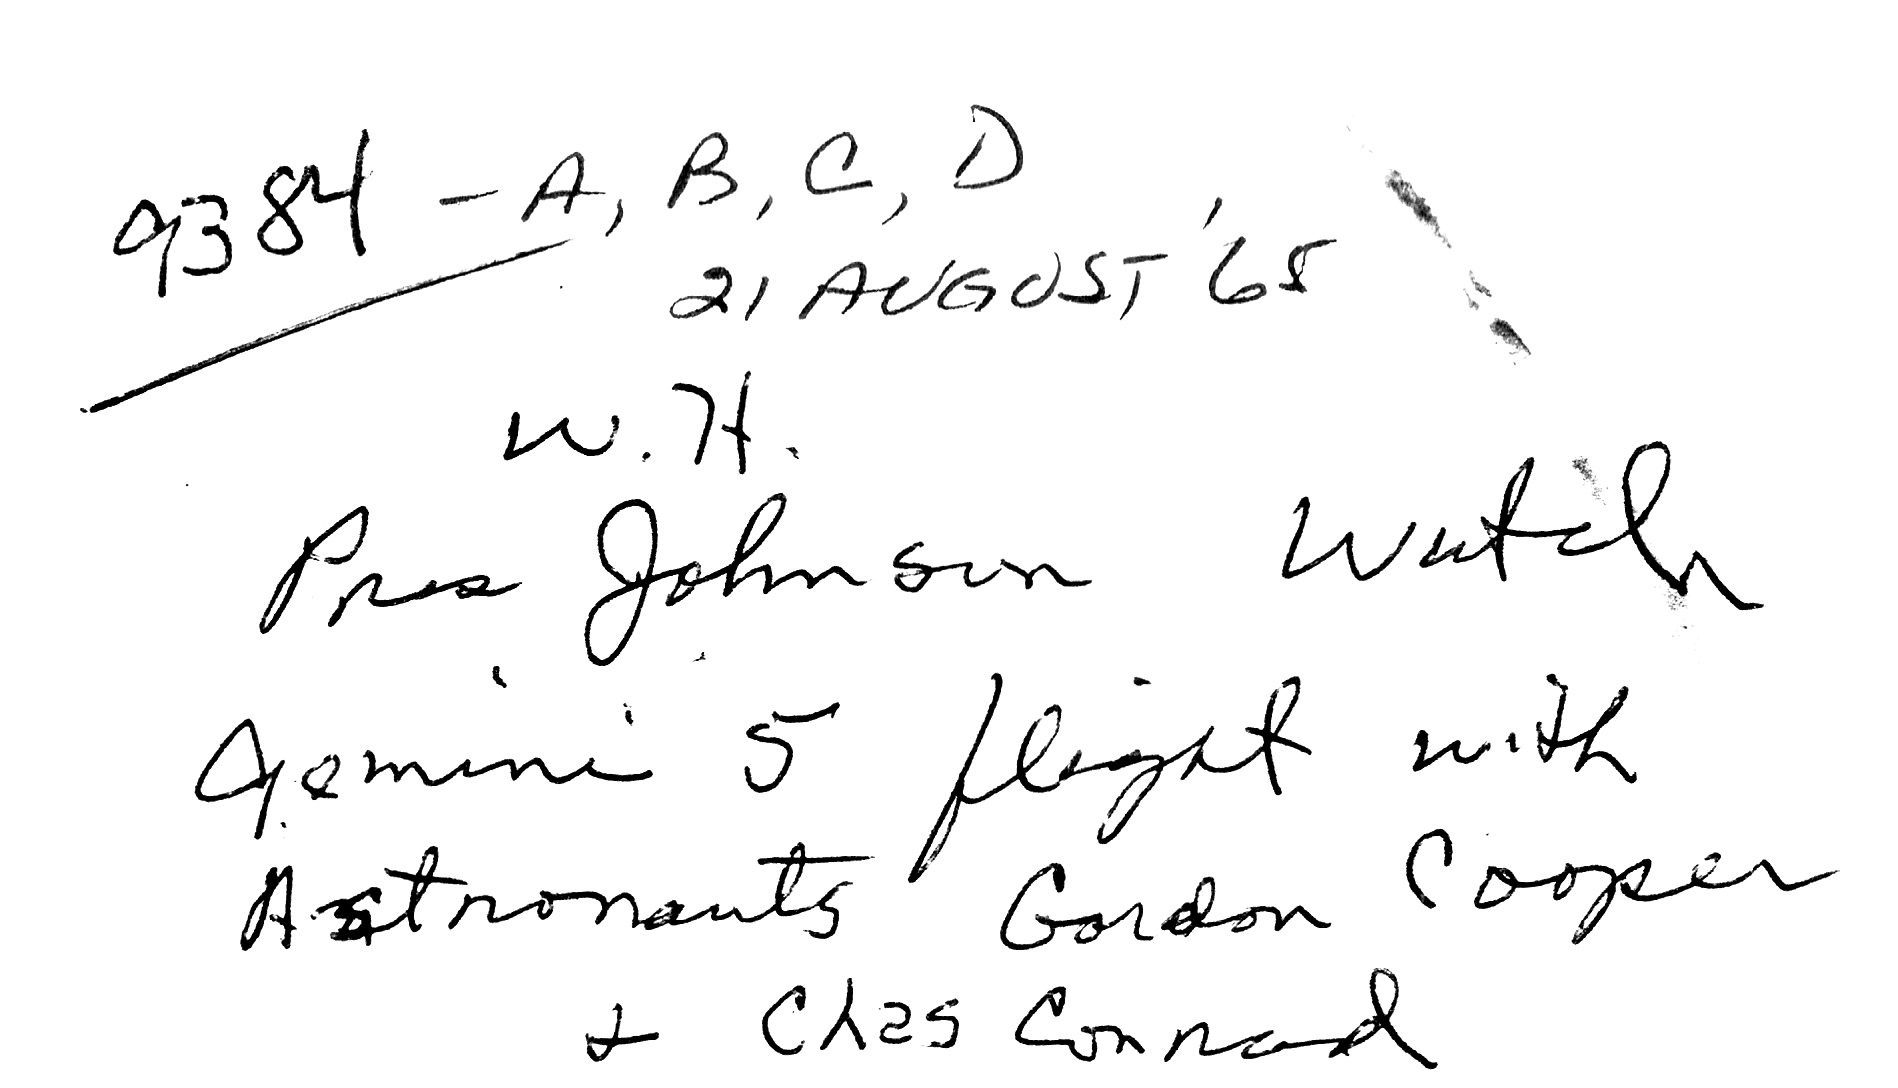 9384 - A, B, C, D
21 AUGUST '65
W.H.
Pres Johnson Watch
Gemini 5 flight with
Astronauts Gordon Cooper
& Chas Conrad